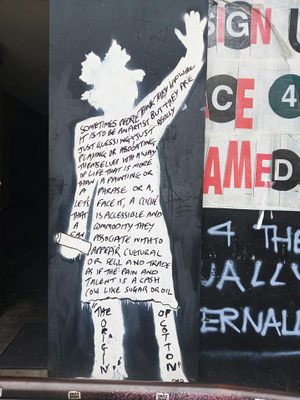 SOMETIMES PEOPLE THINK THEY KNOW WHAT
IT IS TO BE AN ARTIST BUT THEY ARE
JUST GUESSING/JUST REALLY
PLAYING OR ASSOCIATING
THEMSELVES WITH A WAY
OF LIFE THAT IS MORE
THAN A PAINTING OR
A PHRASE OR A,
LETS FACE IT, A CLICHÉ
THAT IS ACCESSIBLE AND
A COMMODITY THEY
CAN ASSOCIATE WITH TO
APPEAR CULTURAL
OR SELL AND TRADE
AS IF THE PAIN AND
TALENT IS A CASH
COW LIKE SUGAR OR OIL
"THE ORIGIN
OF COTTON"
SIGN U
CE 4
AMED
4 THE
UALLY
ERNALL